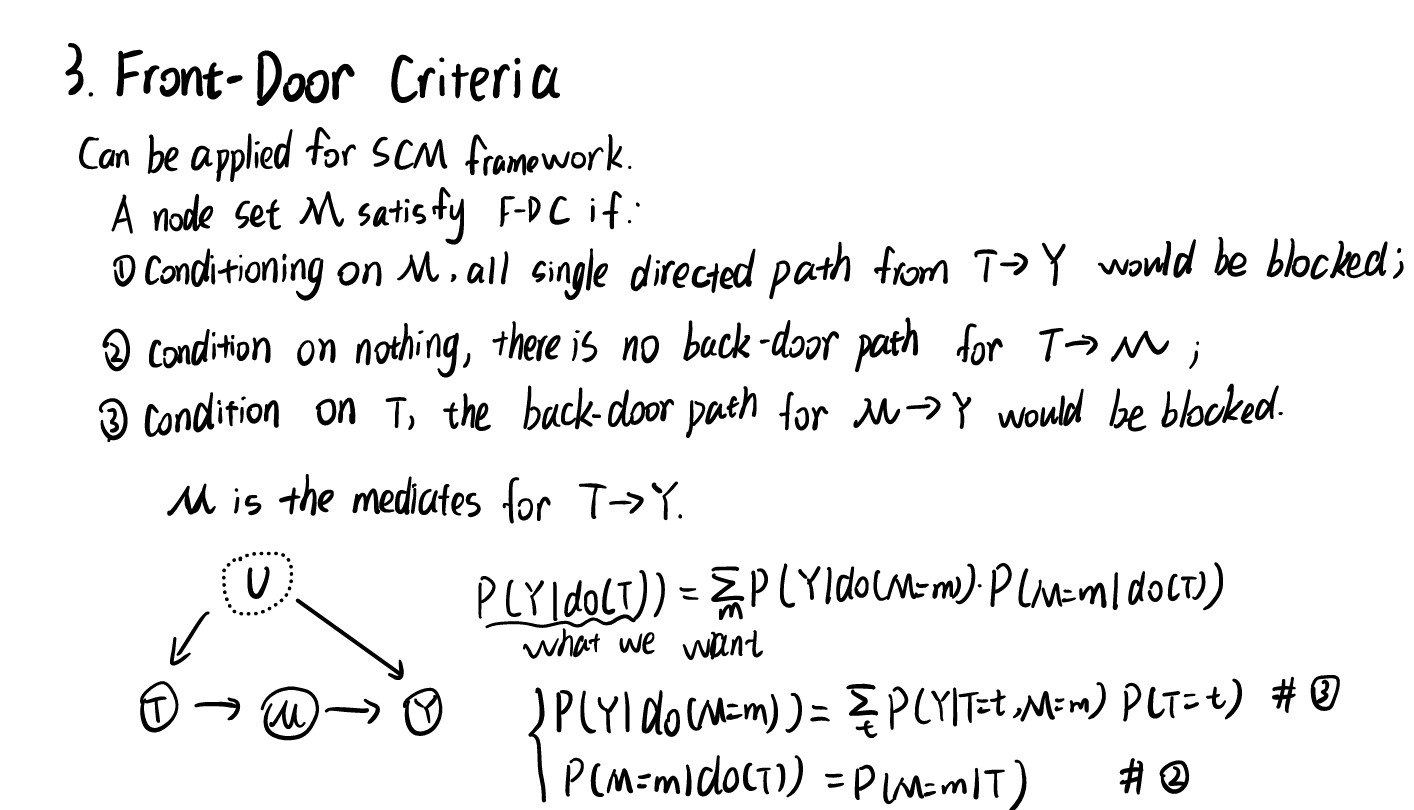 3. Front-Door Criteria
Can be applied for SCM framework.
A node set M satisfy F-DC if:
① Conditioning on M, all single directed path from T→Y would be blocked;
② Condition on nothing, there is no back-door path for T→M ;
③ Condition on T, the back-door path for M→Y would be blocked.
M is the mediates for T→Y.
U
P(Y|do(T)) = ∑_m P(Y|do(M=m)·P(M=m|do(T))
what we want
T → M → Y
{P(Y|do(M=m)) = ∑_t P(Y|T=t,M=m) P(T=t) # ③
P(M=m|do(T)) = P(M=m|T) # ②